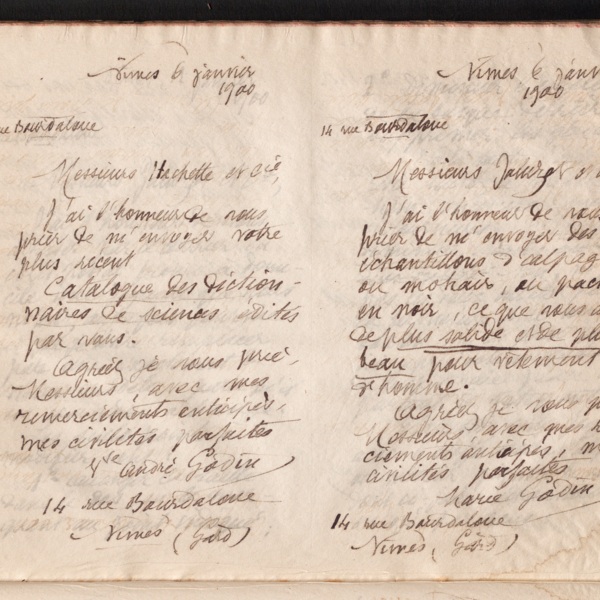 Nimes 6 janvier
1900
rue Bourdaloue
Messieurs Hachette et Cie,
J'ai l'honneur de vous
prier de m'envoyer votre
plus recent
Catalogue des diction-
naires de sciences édités
par vous.
Agréez je vous prie,
Messieurs, avec mes
remerciements anticipés,
mes civilités parfaites
Vve André Godin
14 rue Bourdaloue
Nimes (Gard)
Nimes 6 janv
1900
14 rue Bourdaloue
Messieurs
J'ai l'honneur de vous
prier de m'envoyer des
échantillons d'alpaga
ou mohair, ou
en noir, ce que vous a
de plus solide et de plus
beau pour vêtement
d'homme.
Agréez je vous p
Messieurs avec mes r
ciements anticipés, m
civilités parfaites
Marie Godin
14 rue Bourdaloue
Nimes, (Gard)